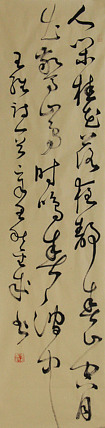 人閒桂花落夜靜春山空月
出驚山鳥時鳴春澗中
王維詩一首 書